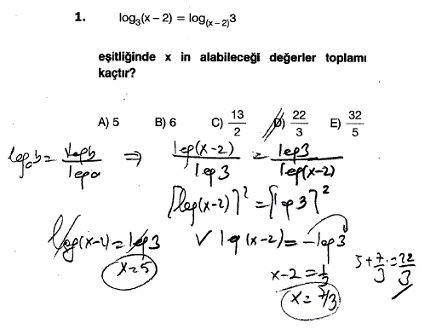 1. log₃(x – 2) = log₍ₓ₋₂₎3
eşitliğinde x in alabileceği değerler toplamı
kaçtır?
A) 5 B) 6 C) 13/2 D) 22/3 E) 32/5
logₐb = logb/loga ⇒ log(x-2)/log3 = log3/log(x-2)
[log(x-2)]² = [log3]²
log(x-2) = log3 ∨ log(x-2) = -log3
x=5 x-2 = 1/3 5+7/3 = 22/3
x = 7/3